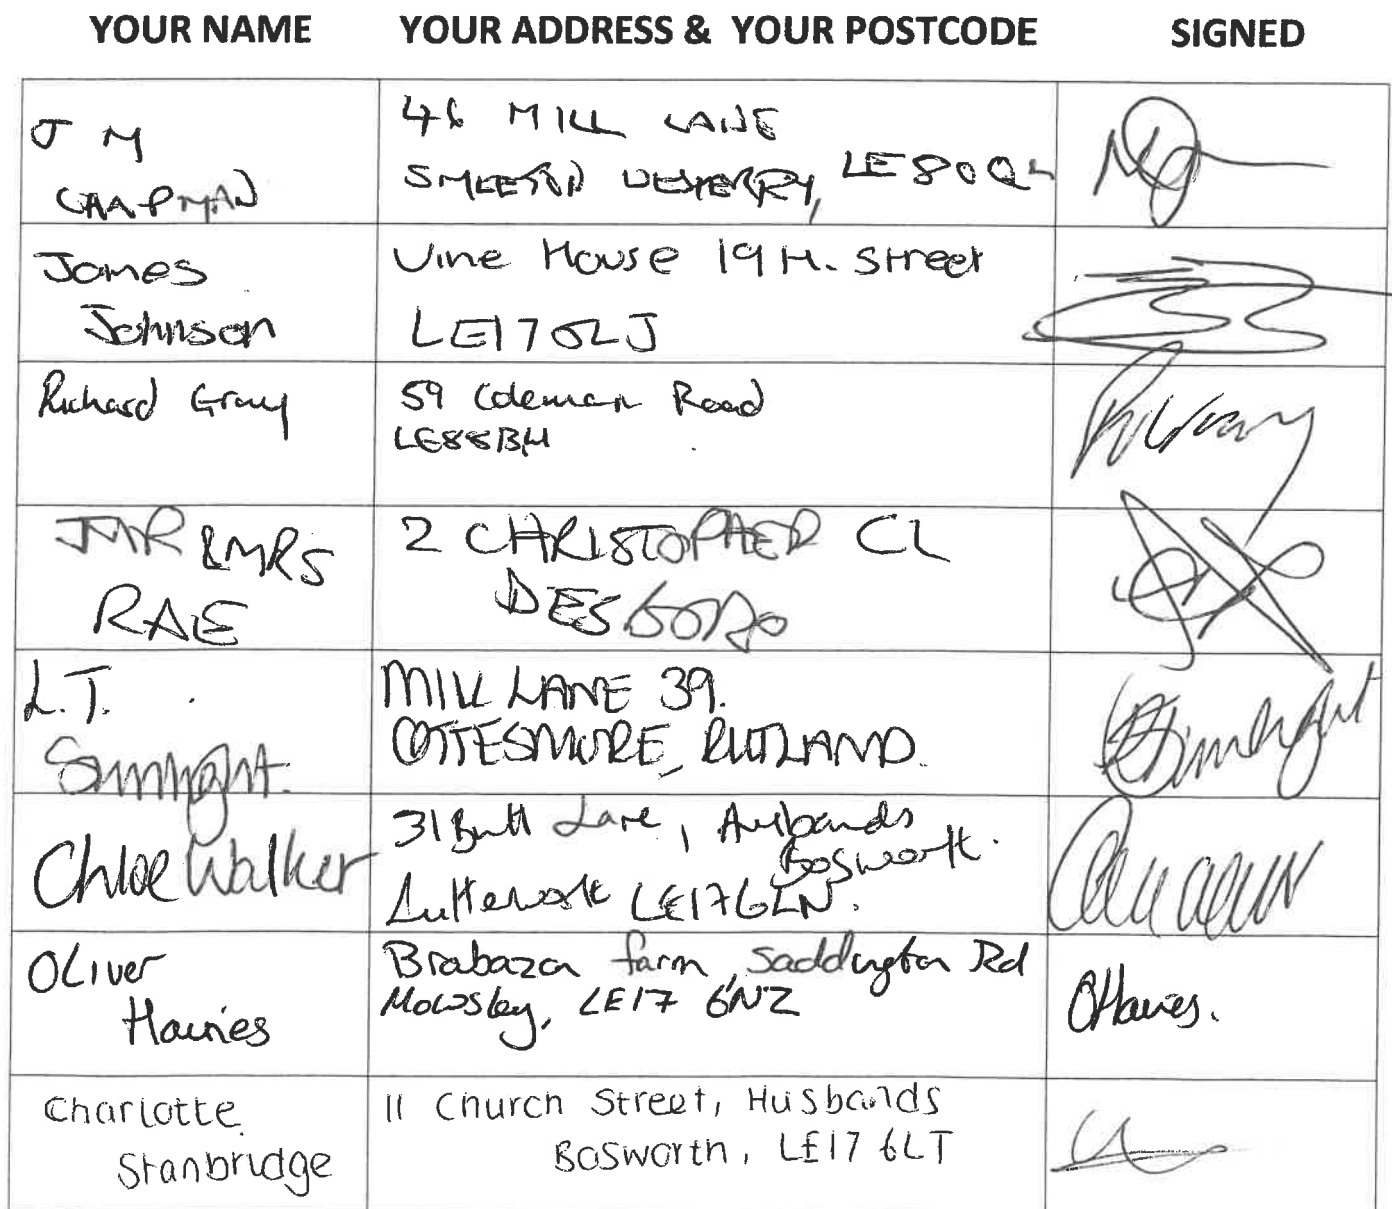 YOUR NAME YOUR ADDRESS & YOUR POSTCODE SIGNED
J M
CHAPMAN
46 MILL LANE
SMEETON WESTERBY, LE8 0QL
James
Johnson
Vine House 19 H. Street
LE17 6LJ
Richard Gray
59 Coleman Road
LE88BH
MR & MRS
RAE
2 CHRISTOPHER CL
DESBORO
L.T.
MILL LANE 39.
COTTESMORE, RUTLAND.
Chloe Walker
31 Butt Lane, Husbands
Bosworth.
Lutterworth LE17 6LN.
Oliver
Hawies
Brabazon farm, Saddington Rd
Mowsley, LE17 6NZ
OHawies.
Charlotte
Stanbridge
11 Church Street, Husbands
Bosworth, LE17 6LT